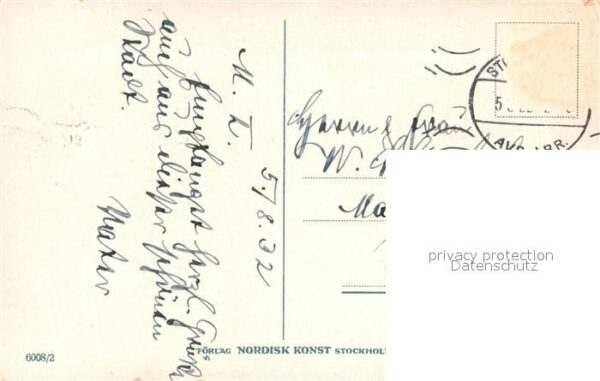 M. L. 5/8.32
Empfanget herzl. Grüße
auch aus dieser schönen
Stadt.
Vater
Herrn & Frau
W.
Ma
ST
5
AVD. LBR.
privacy protection
Datenschutz
6008/2
FÖRLAG NORDISK KONST STOCKHOL